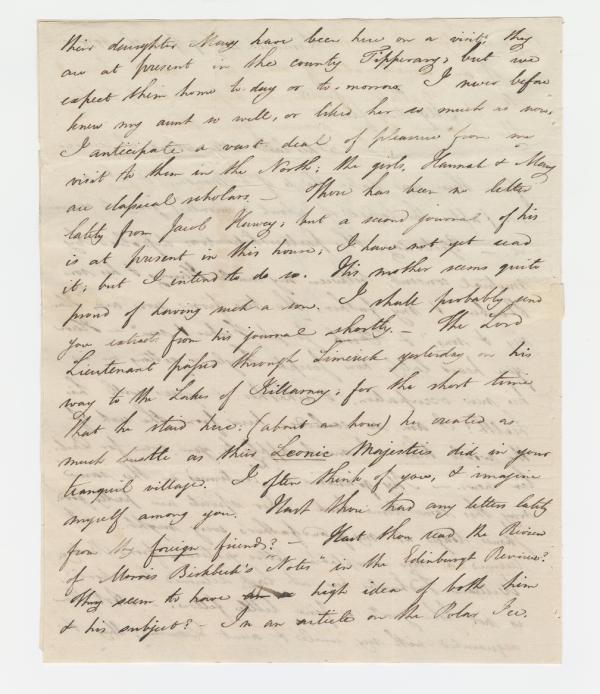 their daughter Mary have been here on a visit; they
are at present in the county Tipperary; but we
expect them home to-day or to-morrow. I never before
knew my aunt so well, or liked her so much as now,
I anticipate a vast deal of pleasure from
visit to them in the North; the girls, Hannah & Mary
are classical scholars. — There has been no letter
lately from Jacob Harvey; but a second journal of his
is at present in this house; I have not yet read
it; but I intend to do so. His mother seems quite
proud of having such a son. I shall probably send
you extracts from his journal shortly. — The Lord
Lieutenant passed through Limerick yesterday on his
way to the Lakes of Killarney; for the short time
that he staid here, (about an hour) he created as
much bustle as their Leonic Majesties did in your
tranquil village. I often think of you, & imagine
myself among you. Hast thou had any letters lately
from thy foreign friends? — Hast thou read the Review
of Morris Birkbeck's "Notes" in the Edinburgh Review?
They seem to have a high idea of both him
& his subject? — In an article on the Polar Ice.